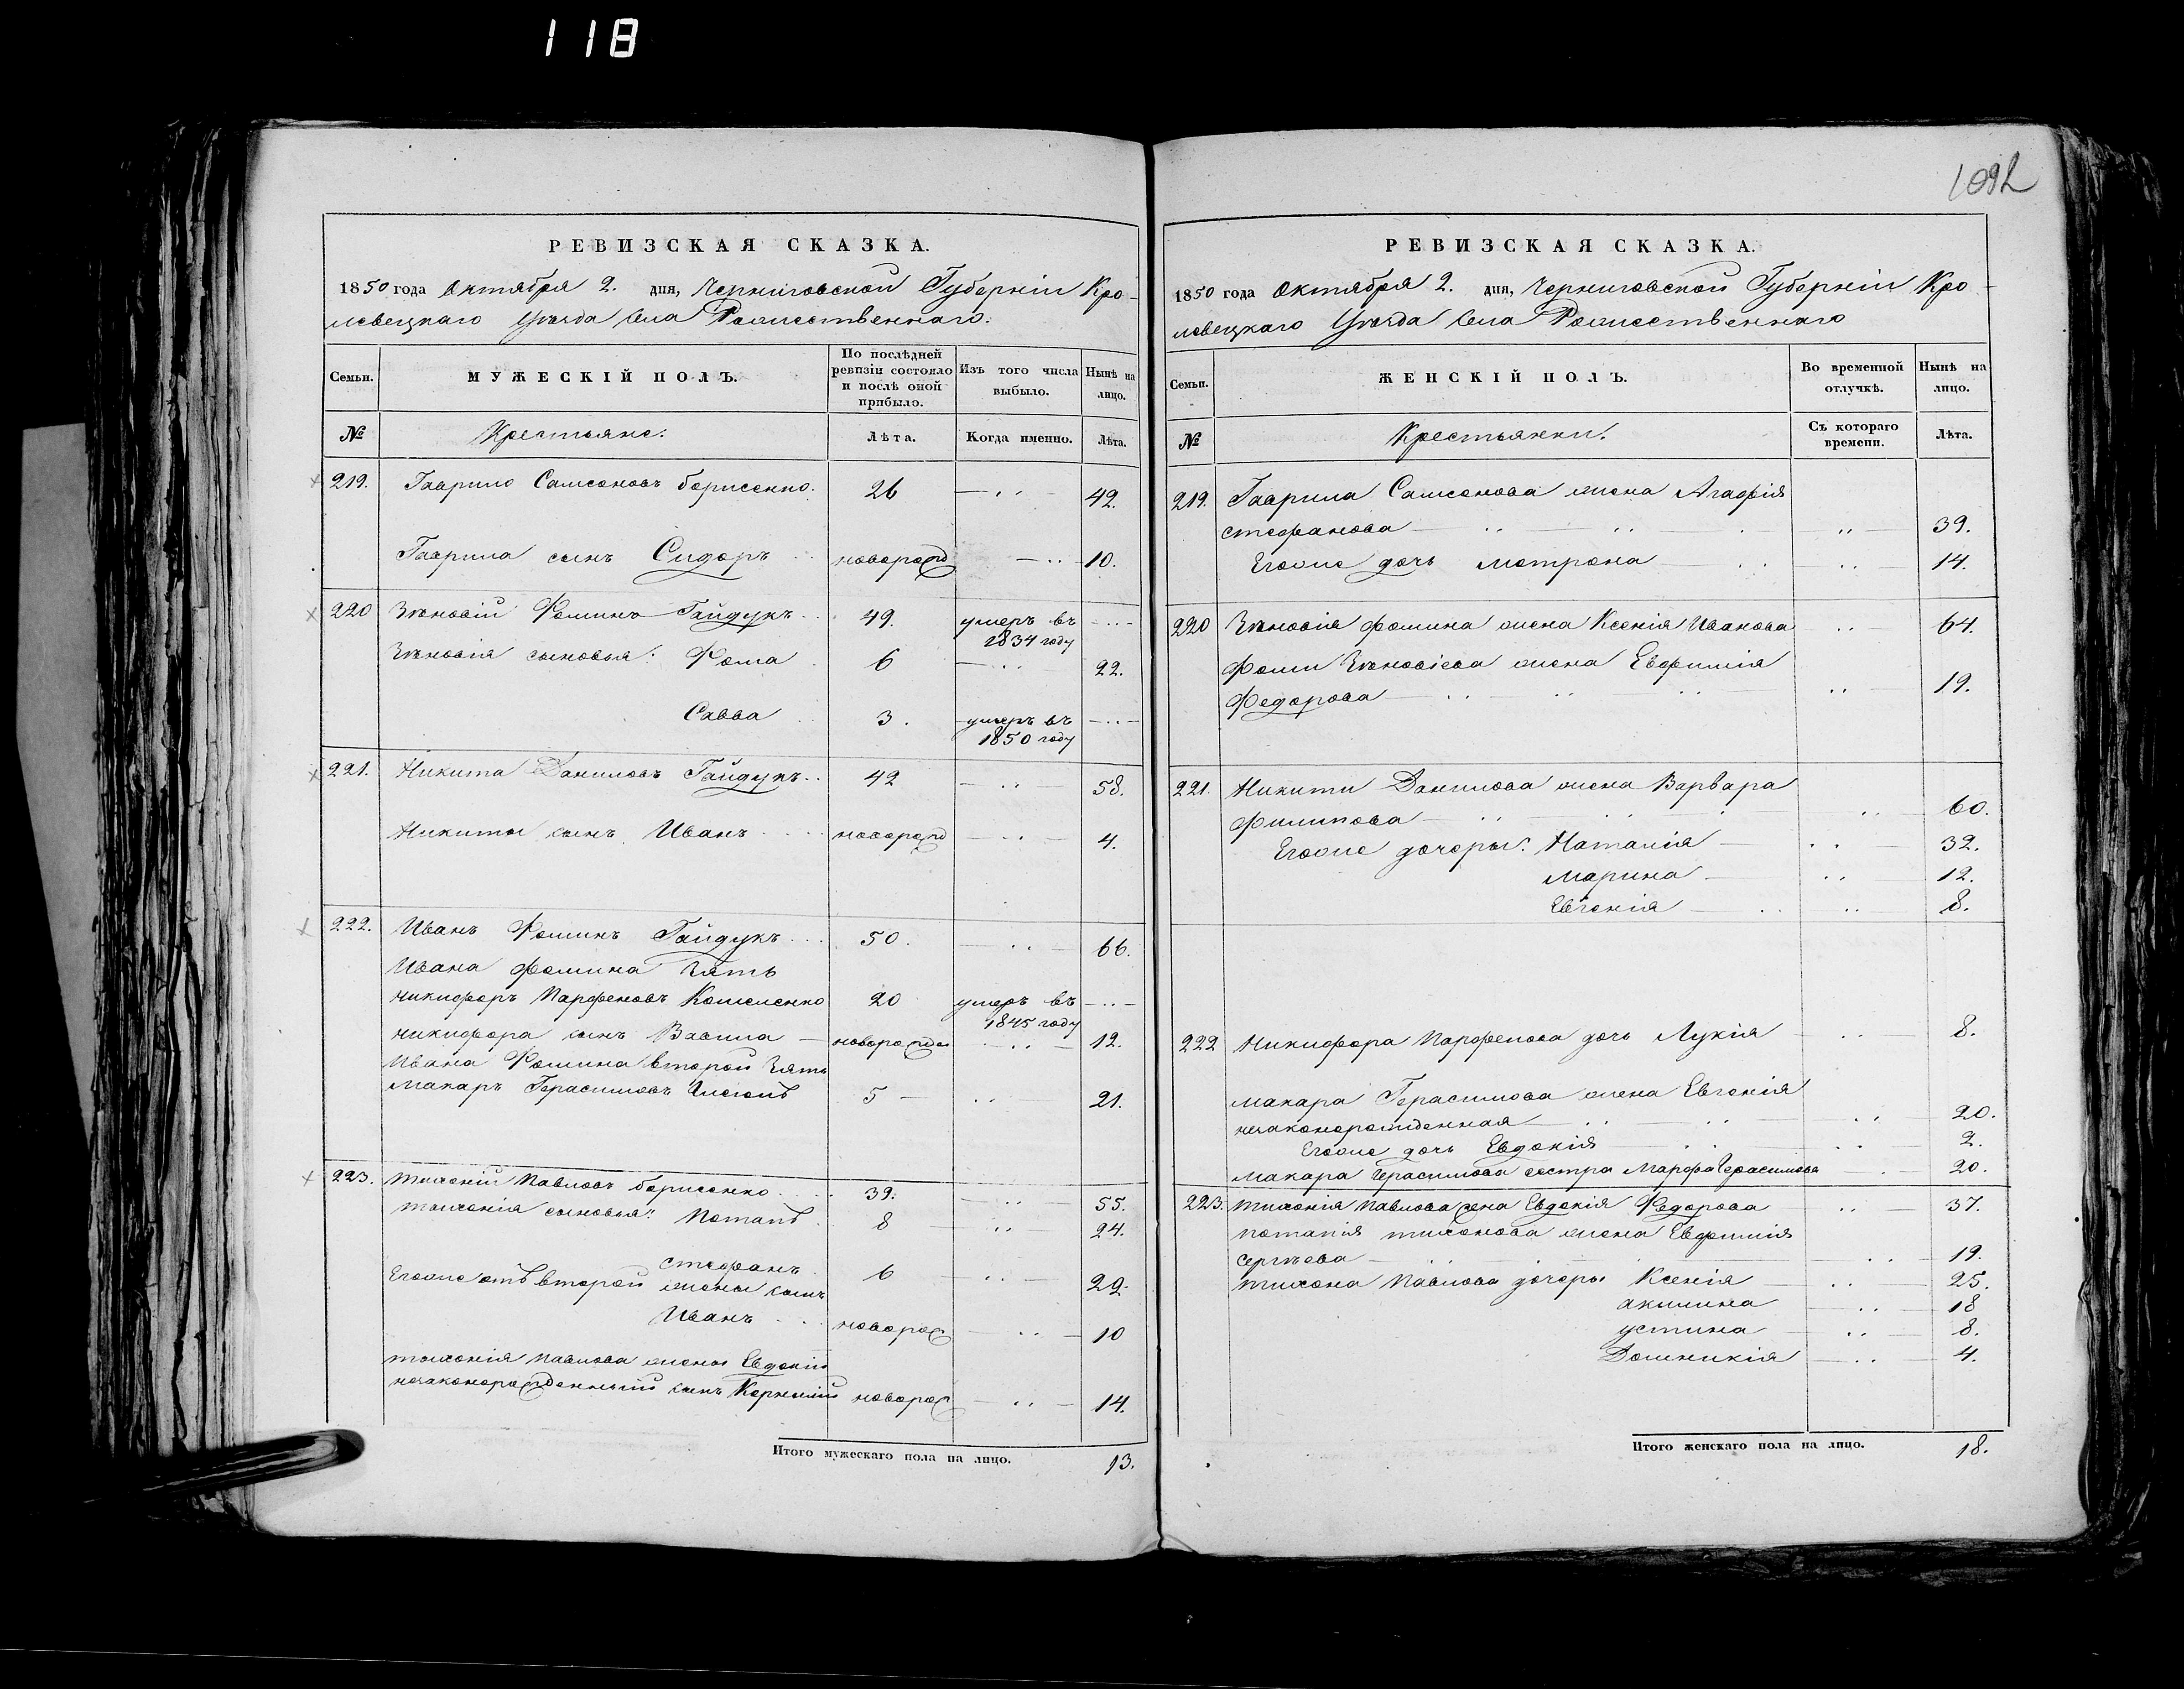 118
1092
РЕВИЗСКАЯ СКАЗКА.
1850 года Октября 2. дня, Черниговской Губерніи Кро-
левецкаго Уѣзда Села Рожественнаго.
Семьи.
МУЖЕСКІЙ ПОЛЪ.
По послѣдней ревизіи состояло и послѣ оной прибыло.
Изъ того числа выбыло.
Нынѣ на лицо.
№
Крестьяне.
Лѣта.
Когда именно.
Лѣта.
219. Гаврило Самсоновъ Борисенко. 26 42.
Гаврила сынъ Сидоръ новорожд 10.
220 Зѣновій Фоминъ Гайдукъ 49. умеръ въ
1834 году
Зѣновія сыновья: Фома 6 22.
Савва 3. умеръ въ
1850 году
221. Никита Даниловъ Гайдукъ 42 58.
Никиты сынъ Иванъ новорожд 4.
222. Иванъ Фоминъ Гайдукъ 50. 66.
Ивана Фомина Зять
Никифоръ Парфеновъ Кошеленко 20 умеръ въ
1845 году
Никифора сынъ Вавила новорожде 12.
Ивана Фомина второй Зять
Макаръ Герасимовъ 5 21.
223. Тихоній Павловъ Борисенко 39. 55.
Тихонія сыновья: Потапъ 8 24.
Стефанъ 6 22.
Егоже отъ второй жены сынъ
Иванъ новорож 10
Тихонія Павлова жены Евдокіи
незаконорожденный сынъ Корнилій новорож 14.
Итого мужескаго пола на лицо. 13.
РЕВИЗСКАЯ СКАЗКА.
1850 года Октября 2. дня, Черниговской Губерніи Кро-
левецкаго Уѣзда Села Рожественнаго
Семьи.
ЖЕНСКІЙ ПОЛЪ.
Во временной отлучкѣ.
Нынѣ на лицо.
№
Крестьянки.
Съ котораго времени.
Лѣта.
219. Гаврила Самсонова жена Агафія
Стефанова 39.
Егоже дочь Мотрона 14.
220 Зѣновія Фомина жена Ксенія Иванова 64.
Фомы Зѣновіева жена Евфимія
Федорова 19.
221. Никиты Данилова жена Варвара
Филипова 60.
Егоже дочеры: Наталія 32.
Марина 12.
Евгенія 8.
222 Никифора Парфенова дочь Лукія 8.
Макара Герасимова жена Евгенія
незаконорожденная 20.
Егоже дочь Евдокія 2.
Макара Герасимова сестра Марфа Герасимова 20.
223. Тихонія Павлова жена Евдокія Федорова 37.
Потапія Тихонова жена Евфимія
Сергѣева 19.
Тихона Павлова дочеры Ксенія 25.
Акилина 18
Устина 8.
Домникія 4.
Итого женскаго пола на лицо. 18.